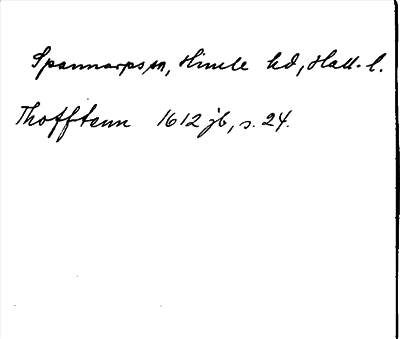 Spannarps sn, Himle hd, Hall. l.
Thofftenn 1612 jb, s. 24.